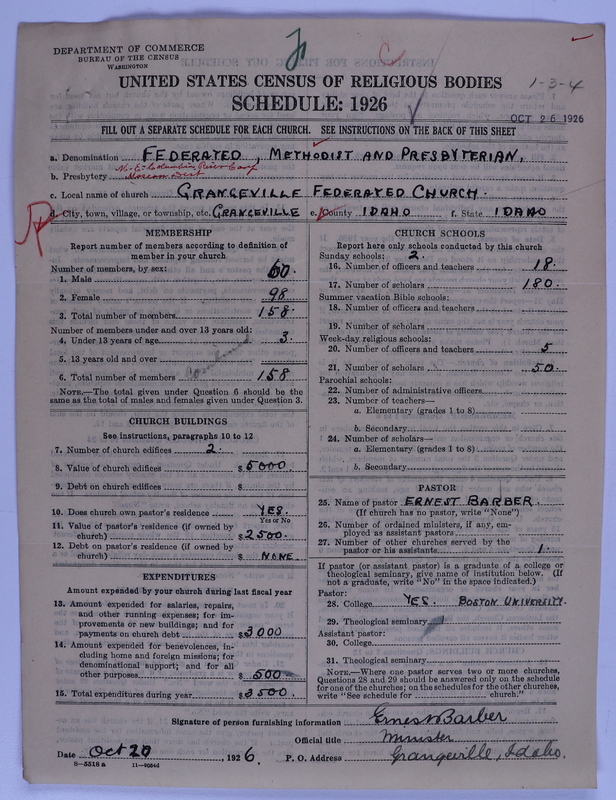 DEPARTMENT OF COMMERCE
BUREAU OF THE CENSUS
WASHINGTON
UNITED STATES CENSUS OF RELIGIOUS BODIES
1-3-4
SCHEDULE: 1926
OCT 26 1926
FILL OUT A SEPARATE SCHEDULE FOR EACH CHURCH. SEE INSTRUCTIONS ON THE BACK OF THIS SHEET
a. Denomination FEDERATED, METHODIST AND PRESBYTERIAN,
M.E. Columbia River Conf
b. Presbytery Moscow Dist
c. Local name of church GRANGEVILLE FEDERATED CHURCH.
d. City, town, village, or township, etc. GRANGEVILLE e. County IDAHO f. State IDAHO
MEMBERSHIP
Report number of members according to definition of
member in your church
Number of members, by sex:
1. Male 60.
2. Female 98
3. Total number of members 158
Number of members under and over 13 years old:
4. Under 13 years of age 3.
5. 13 years old and over
Combined
6. Total number of members 158
NOTE.—The total given under Question 6 should be
same as the total of males and females given under Question 3.
CHURCH BUILDINGS
See instructions, paragraphs 10 to 12
7. Number of church edifices 2.
8. Value of church edifices $5000
9. Debt on church edifices $
10. Does church own pastor's residence YES.
Yes or No
11. Value of pastor's residence (if owned by
church) $2500.
12. Debt on pastor's residence (if owned by
church) $ NONE
EXPENDITURES
Amount expended by your church during last fiscal year
13. Amount expended for salaries, repairs,
and other running expenses; for im-
provements or new buildings; and for
payments on church debt $3000
14. Amount expended for benevolences, in-
cluding home and foreign missions; for
denominational support; and for all
other purposes $ 500
15. Total expenditures during year $3500.
CHURCH SCHOOLS
Report here only schools conducted by this church
Sunday schools: 2.
16. Number of officers and teachers 18.
17. Number of scholars 180.
Summer vacation Bible schools:
18. Number of officers and teachers
19. Number of scholars
Week-day religious schools:
20. Number of officers and teachers 5
21. Number of scholars 50.
Parochial schools:
22. Number of administrative officers
23. Number of teachers—
a. Elementary (grades 1 to 8)
b. Secondary
24. Number of scholars—
a. Elementary (grades 1 to 8)
b. Secondary
PASTOR
25. Name of pastor ERNEST BARBER
(If church has no pastor, write "None")
26. Number of ordained ministers, if any, em-
ployed as assistant pastors
27. Number of other churches served by the
pastor or his assistants 1.
If pastor (or assistant pastor) is a graduate of a college or
theological seminary, give name of institution below. (If
not a graduate, write "No" in the space indicated.)
Pastor:
28. College YES. BOSTON UNIVERSITY.
29. Theological seminary
Assistant pastor:
30. College
31. Theological seminary
NOTE.—Where one pastor serves two or more churches,
Questions 28 and 29 should be answered only on the schedule
for one of the churches; on the schedules for the other churches,
write "See schedule for church."
Signature of person furnishing information Ernest Barber
Official title Minister
Date Oct 20, 1926. P. O. Address Grangeville, Idaho.
8—5518 a